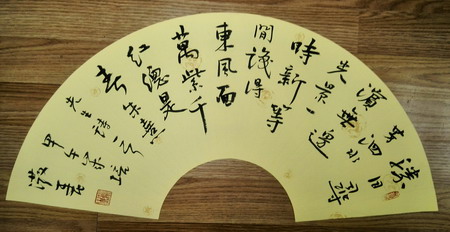 勝日尋
芳泗水
濱無邊
光景一
時新等
間識得
東風面
萬紫千
紅總是
春朱熹
先生詩
甲午